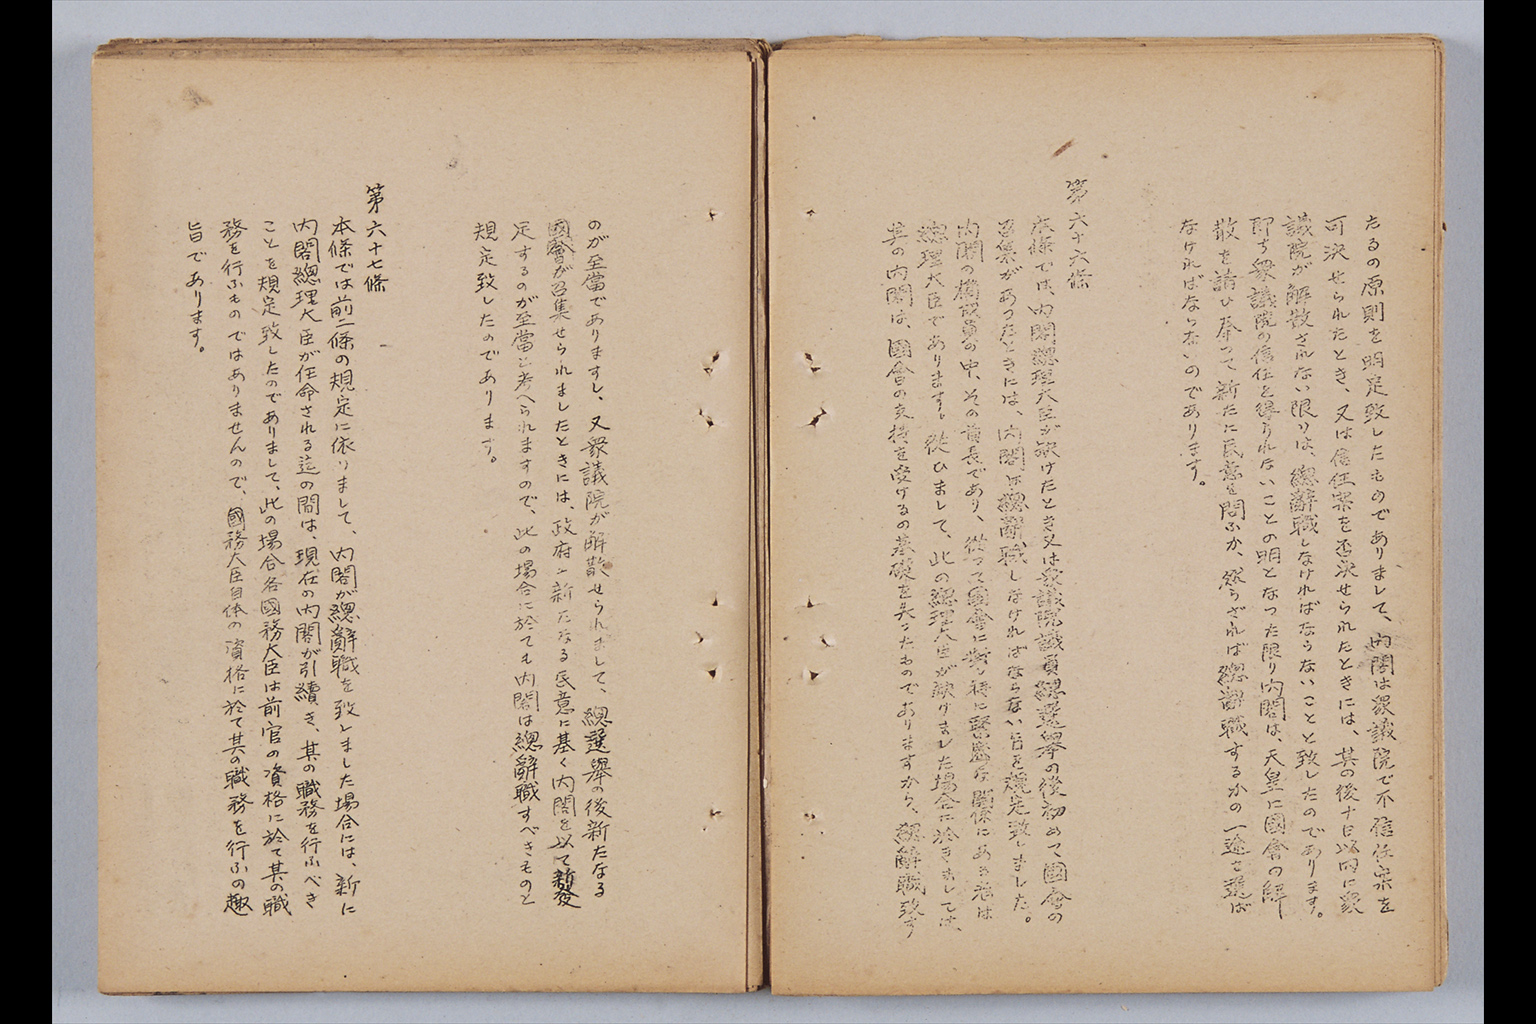 たるの原則を明定致したものでありまして、内閣は衆議院で不信任案を
可決せられたとき、又は信任案を否決せられたときには、其の後十日以内に衆
議院が解散されない限りは、總辭職しなければならないことと致したのであります。
即ち衆議院の信任を得られないことの明となつた限り内閣は、天皇に國會の解
散を請ひ奉つて新たに民意を問ふか、然らざれば總辭職するかの一途を選ば
なければならないのであります。
第六十六條
本條では、内閣總理大臣が欠けたとき又は衆議院議員總選擧の後初めて國會の
召集があつたときには、内閣は總辭職しなければならない旨を規定致しました。
内閣の構成員の中、その首長であり、從つて國會に對し特に緊密な關係にある者は
總理大臣であります。從ひまして、此の總理大臣が欠けました場合に於きましては、
其の内閣は、國會の支持を受けるの基礎を失つたものでありますから、總辭職致す
のが至當でありますし、又衆議院が解散せられまして、總選擧の後新たなる
國會が召集せられましたときには、政府ハ新たなる民意に基く内閣を以て新發
足するのが至當と考へられますので、此の場合に於ても内閣は總辭職すべきものと
規定致したのであります。
第六十七條
本條では前二條の規定に依りまして、内閣が總辭職を致しました場合には、新に
内閣總理大臣が任命される迄の間は、現在の内閣が引續き、其の職務を行ふべき
ことを規定致したのでありまして、此の場合各國務大臣は前官の資格に於て其の職
務を行ふものではありませんので、國務大臣自体の資格に於て其の職務を行ふの趣
旨であります。